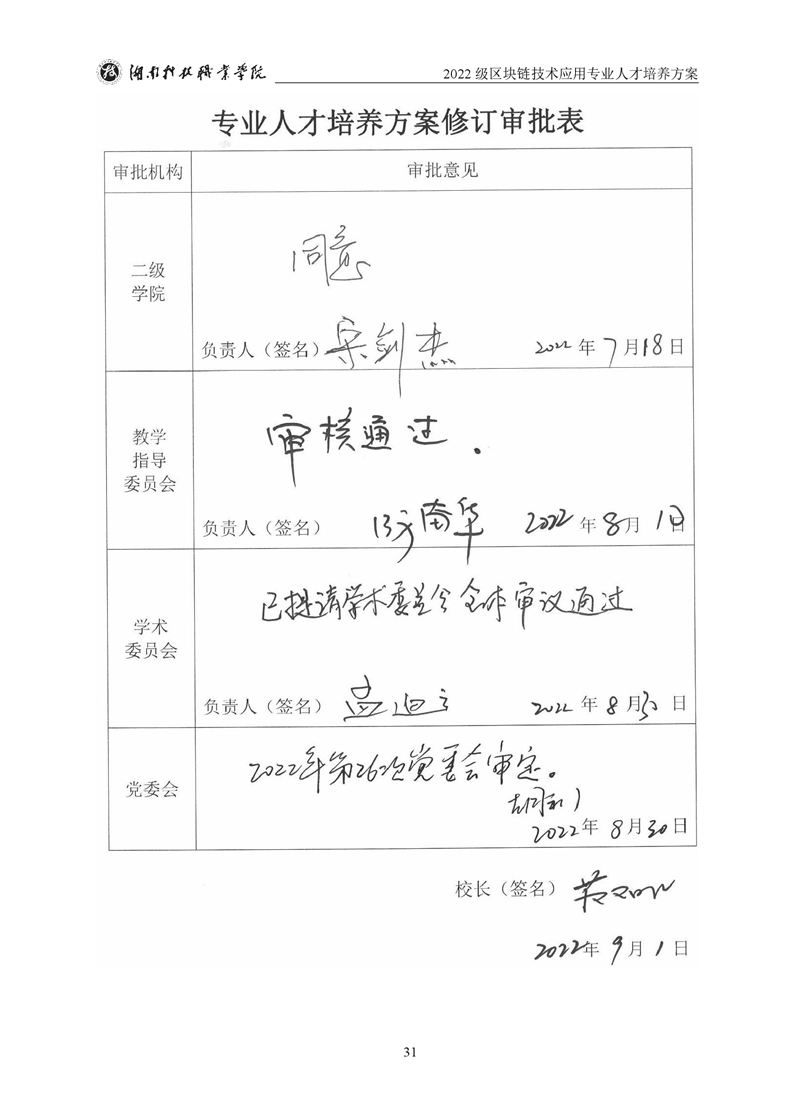 湖南科技职业学院
2022 级区块链技术应用专业人才培养方案
专业人才培养方案修订审批表
审批机构 审批意见
二级
学院
同意
负责人（签名）宋剑杰 2022 年 7 月 18 日
教学
指导
委员会
审核通过。
负责人（签名） 南华 2022 年 8 月 1 日
学术
委员会
已提请学术委员会全体审议通过
负责人（签名）孟迪云 2022 年 8 月 30 日
党委会
2022年第26次党委会审定。
2022 年 8 月 30 日
校长（签名）
2022 年 9 月 1 日
31